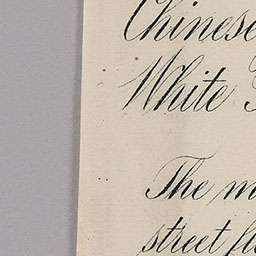 Chinese
White
The m
street fl